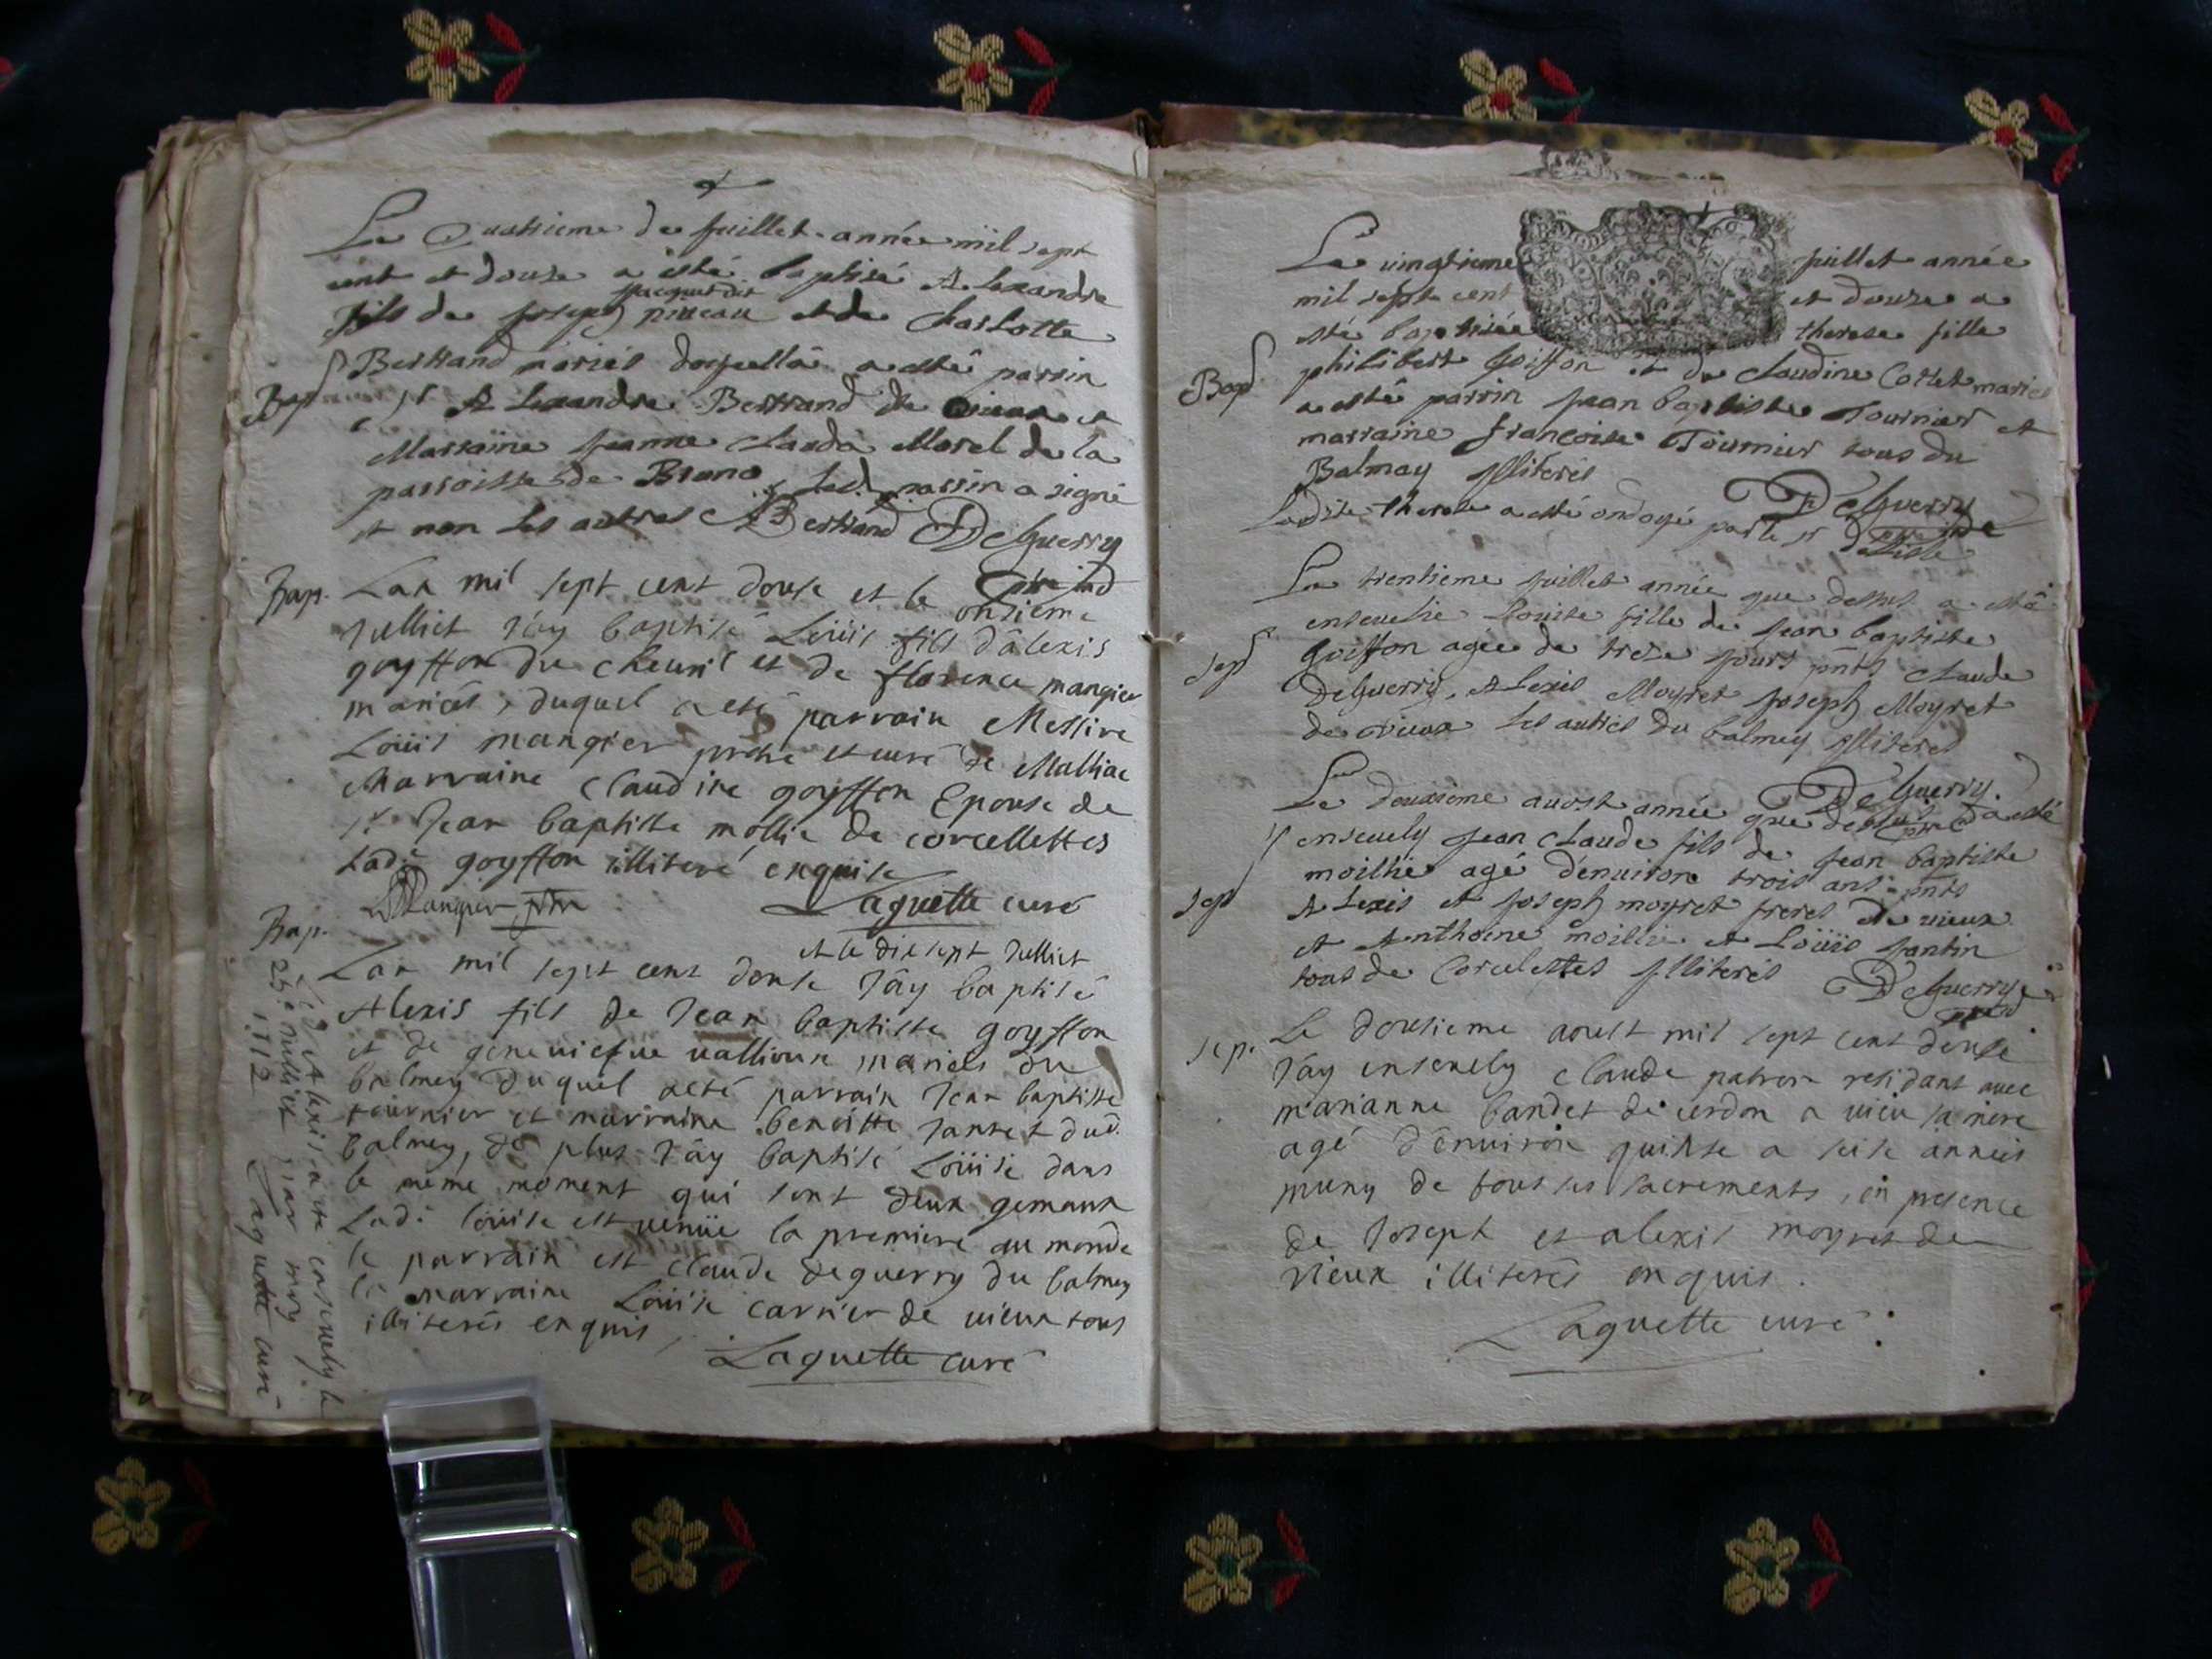 Le Quatrieme de juillet année mil sept
cent et douze a esté baptisé Alexandre
Jacquet dit
fils de joseph et de Charlotte
Bertrand mariés duquella a esté parrin
Bap Sr Alexandre Bertrand de vieux et
Marraine jeanne Clauda Morel de la
parroisse de Breno Led. parrin a signé
et non les autres ABertrand DeGuerry
Bap. Lan mil sept cent douse et le onsieme
Julliet J'ay baptisé Loüis fils d'alexis
goyffon du Cheuril et de florence mangier
mariés, duquel a eté parrain Messire
Loüis mangier pretre et curé de Malliac
Marraine Claudine goyffon Epouse de
Sr Jean baptiste mollie de corcellettes
Lad.e goyffon illiteré enquise
LMangier ptre Laguette curé
Bap. et le dix sept Julliet
Lan mil sept cent douse J'ay baptisé
Alexis fils de Jean baptiste goyffon
et de geneuiefue uallioux mariés du
balmey duquel a eté parrain Jean baptiste
tournier et marraine benoitte Jantet dud.
balmey, de plus J'ay baptisé Loüise dans
le méme moment qui sont deux gemaux
Lad.e loüise est uenüe la premiere au monde
le parrain est Claude deguerry du balmey
la marraine Loüise carrier de uieux tous
illiterés enquis,
Laguette curé
Led Alexis a eté enseuely le
25.e Julliet par moy
1712 Laguette curé
Le uingtieme juillet année
mil sept cent et douze a
esté baptisée therese fille
Bap philibert Goiffon et de Claudine Cottet mariés
a esté parrin jean baptiste Tournier et
marraine françoise Tournier tous du
Balmay jlliterés
DeGuerry
Ladite therese a esté ondoyé par le sr
Le trentieme juillet année que dessus a esté
enseuelie Louise fille de jean baptiste
Sep Goiffon agée de treze jours pnts Claude
DeGuerry, Alexis Moyret joseph Moyret
de vieux les autres du balmey jlliterés
DeGuerry
Le deuxieme auost année que dessus a esté
enseuely jean Claude fils de jean baptiste
moillié agé d'enuiron trois ans pnts
Sep Alexis et joseph moyret freres de uieux
et Anthoine moillié et Loüis jantin
tous de Corcelettes jlliterés DeGuerry
Sep. Le dousieme aoust mil sept cent douse
J'ay enseuely Claude patron residant auec
marianne bandet de cerdon a uieu sa mere
agé d'enuiron quinse a seise années
muny de tous ses sacrements, en presence
de Joseph et alexis moyret de
vieux illiterés enquis.
Laguette curé